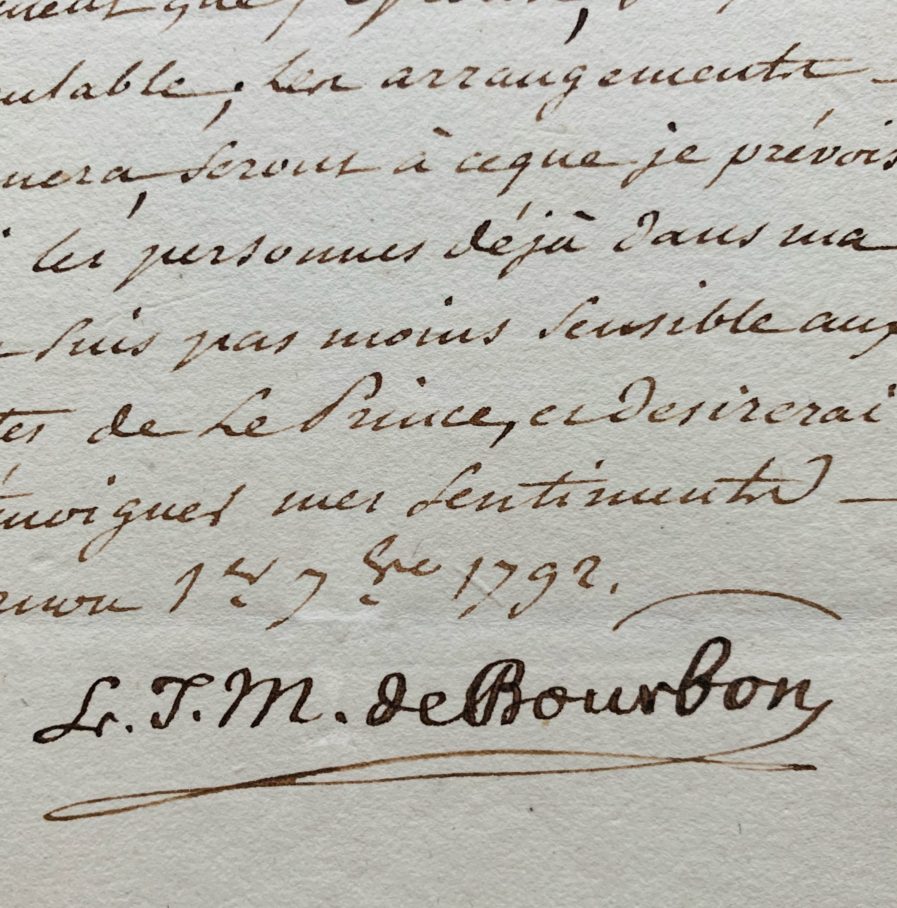 ment que
utable; les arrangements
nera, seront à ceque je prévois
les personnes déjà dans ma
suis pas moins sensible aux
tes de Le Prince, et desirerai
moigner mes sentiments
rnon 1er 7bre 1792.
L. J. M. de Bourbon